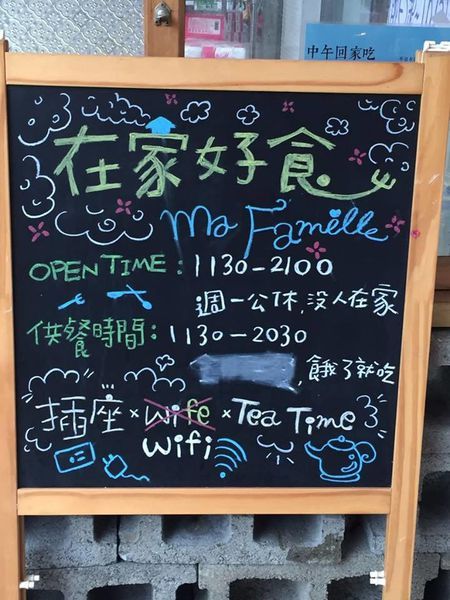 中午回家吃
在家好食
Ma Famille
OPEN TIME：1130-2100
週一公休,沒人在家
供餐時間：1130-2030
,餓了就吃
插座×wife×Tea Time
wifi